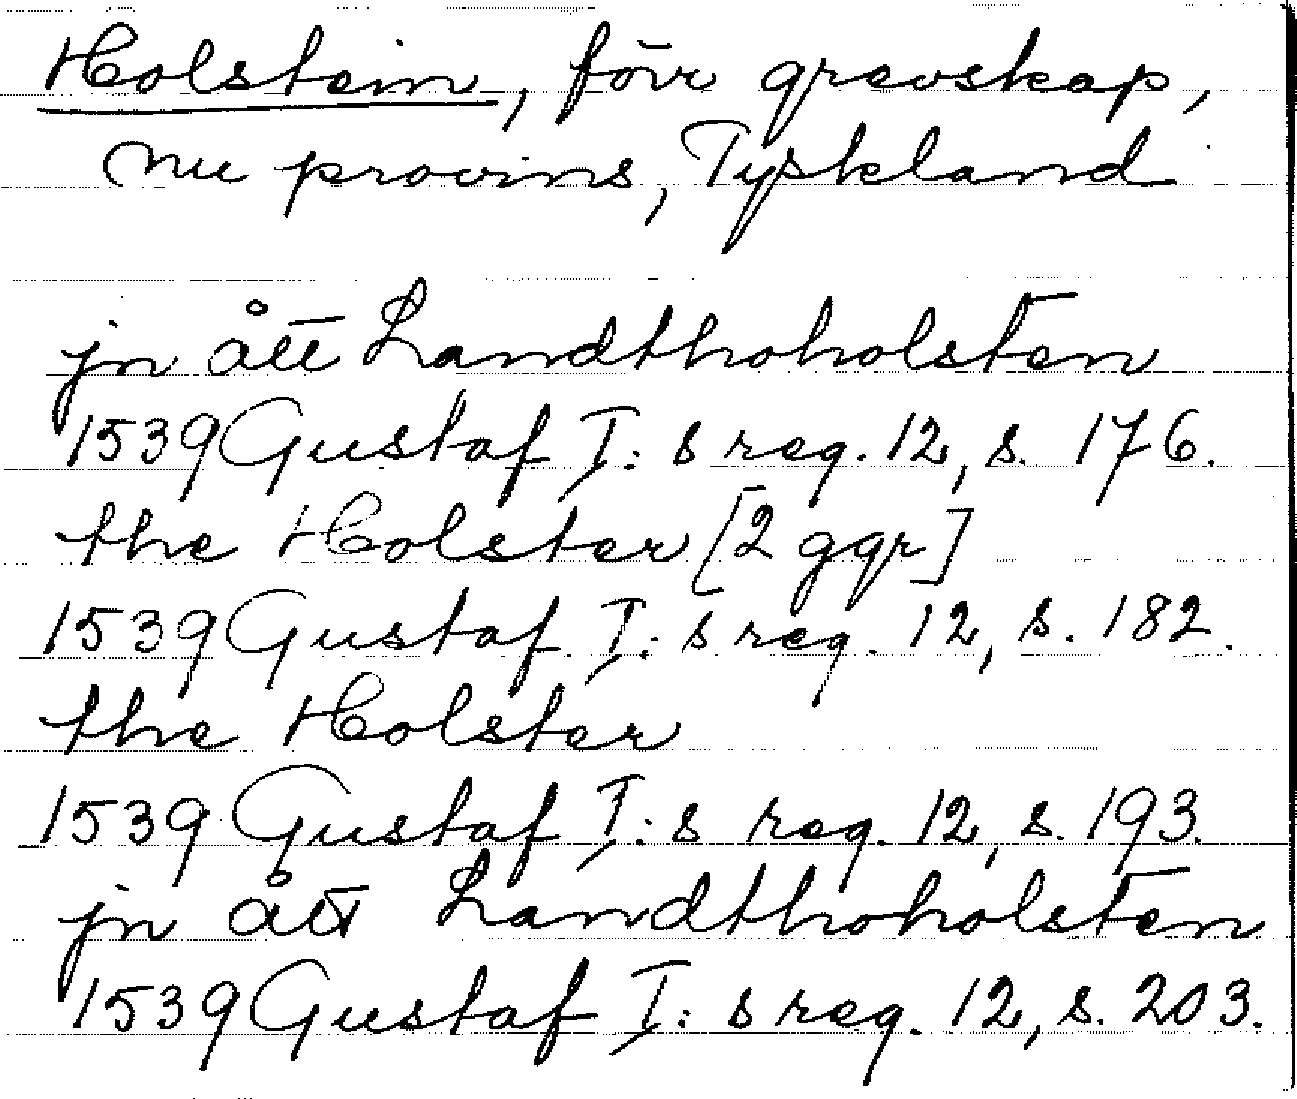 Holstein, förr grevskap,
nu provins, Tyskland
jn ått Landthoholsten
1539 Gustaf I:s reg. 12, s. 176.
the Holster [2 ggr]
1539 Gustaf I:s reg. 12, s. 182.
the Holster
1539 Gustaf I:s reg. 12, s. 193.
jn ått Landthoholsten
1539 Gustaf I:s reg. 12, s. 203.